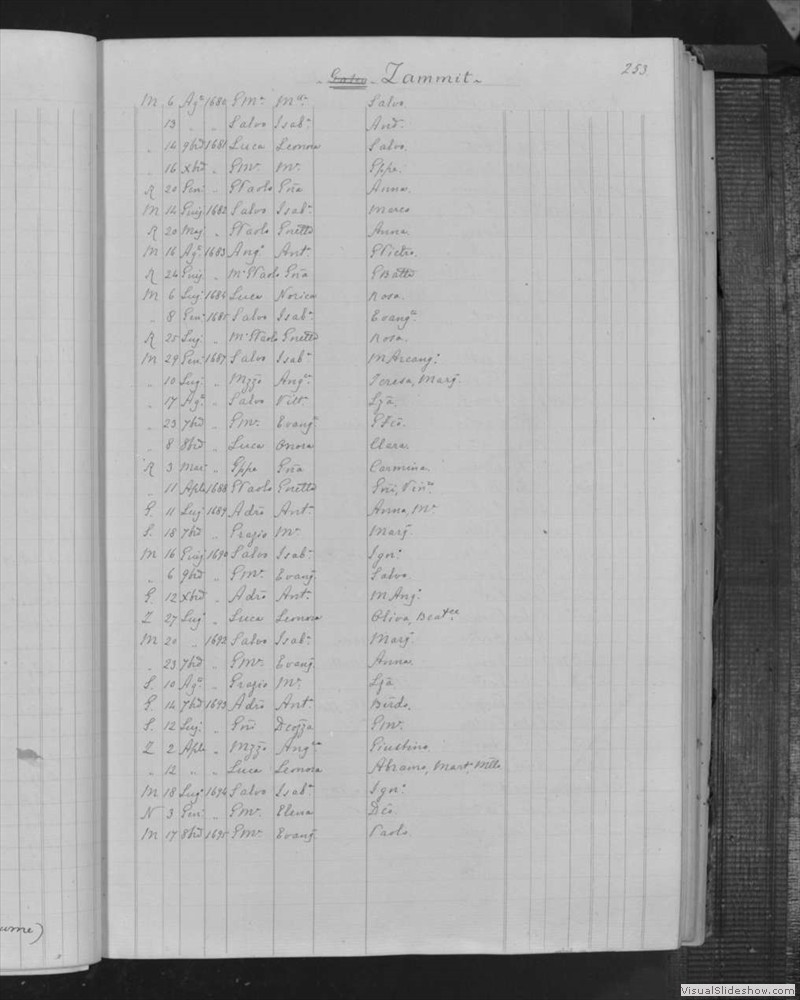 Zammit 253
M 6 Ag° 1680 Gmª Mª Salvo
" 13 " " Salvo Isabª And.
" 14 9bre 1681 Luca Leonora Salvo.
" 16 Xbre " Gmª Mª Gppe.
R 20 Gen " Paolo Gña Anna.
M 14 Guig 1682 Salvo Isabª Marco
R 20 Maj " Paolo Gnetta Anna.
M 16 Ag° 1683 Ang° Antª Pietro.
R 24 Guig " Mº Paolo Gña GBatta
M 6 Lug 1684 Luca Norica Rosa.
" 8 Gen 1685 Salvo Isabª Evangª
R 25 Lug " Mº Paolo Gnetta Rosa.
M 29 Gen 1687 Salvo Isabª MArcangª
" 10 Lug " Mzzo Angª Teresa, Marg
" 17 Ag° " Salvo Vittª Lza.
" 23 7bre " Gmª Evangª
" 8 8bre " Luca Onora Clara.
R 3 Mar " Gppe Gña Carmina.
" 11 Aple 1688 Paolo Gnetta
G. 11 Lug 1689 Adrº Antª Anna, Mª
S. 18 7bre " Grazio Mª Marg
M 16 Guig 1690 Salvo Isabª Ignº
" 6 9bre " Gmª Evang Salvo
G. 12 Xbre " Adrº Antª MAngª
Z 27 Lug " Luca Leonora Oliva, Beatce
M 20 " 1692 Salvo Isabª Marg
" 23 7bre " Gmª Evang Anna.
S. 10 Ag° " Grazio Mª Lza.
G. 14 7bre 1693 Adrº Antª
S. 12 Lug " Gmª
Z 2 Aple " Mzzo Angª Giustina.
" 12 " " Luca Leonora Abramo, Mart,
M 18 Lug 1694 Salvo Isabª Ignº
N 3 Gen " Gmª Elena
M 17 8bre 1695 Gmª Evang Paolo.
ume)
VisualSlideshow.com